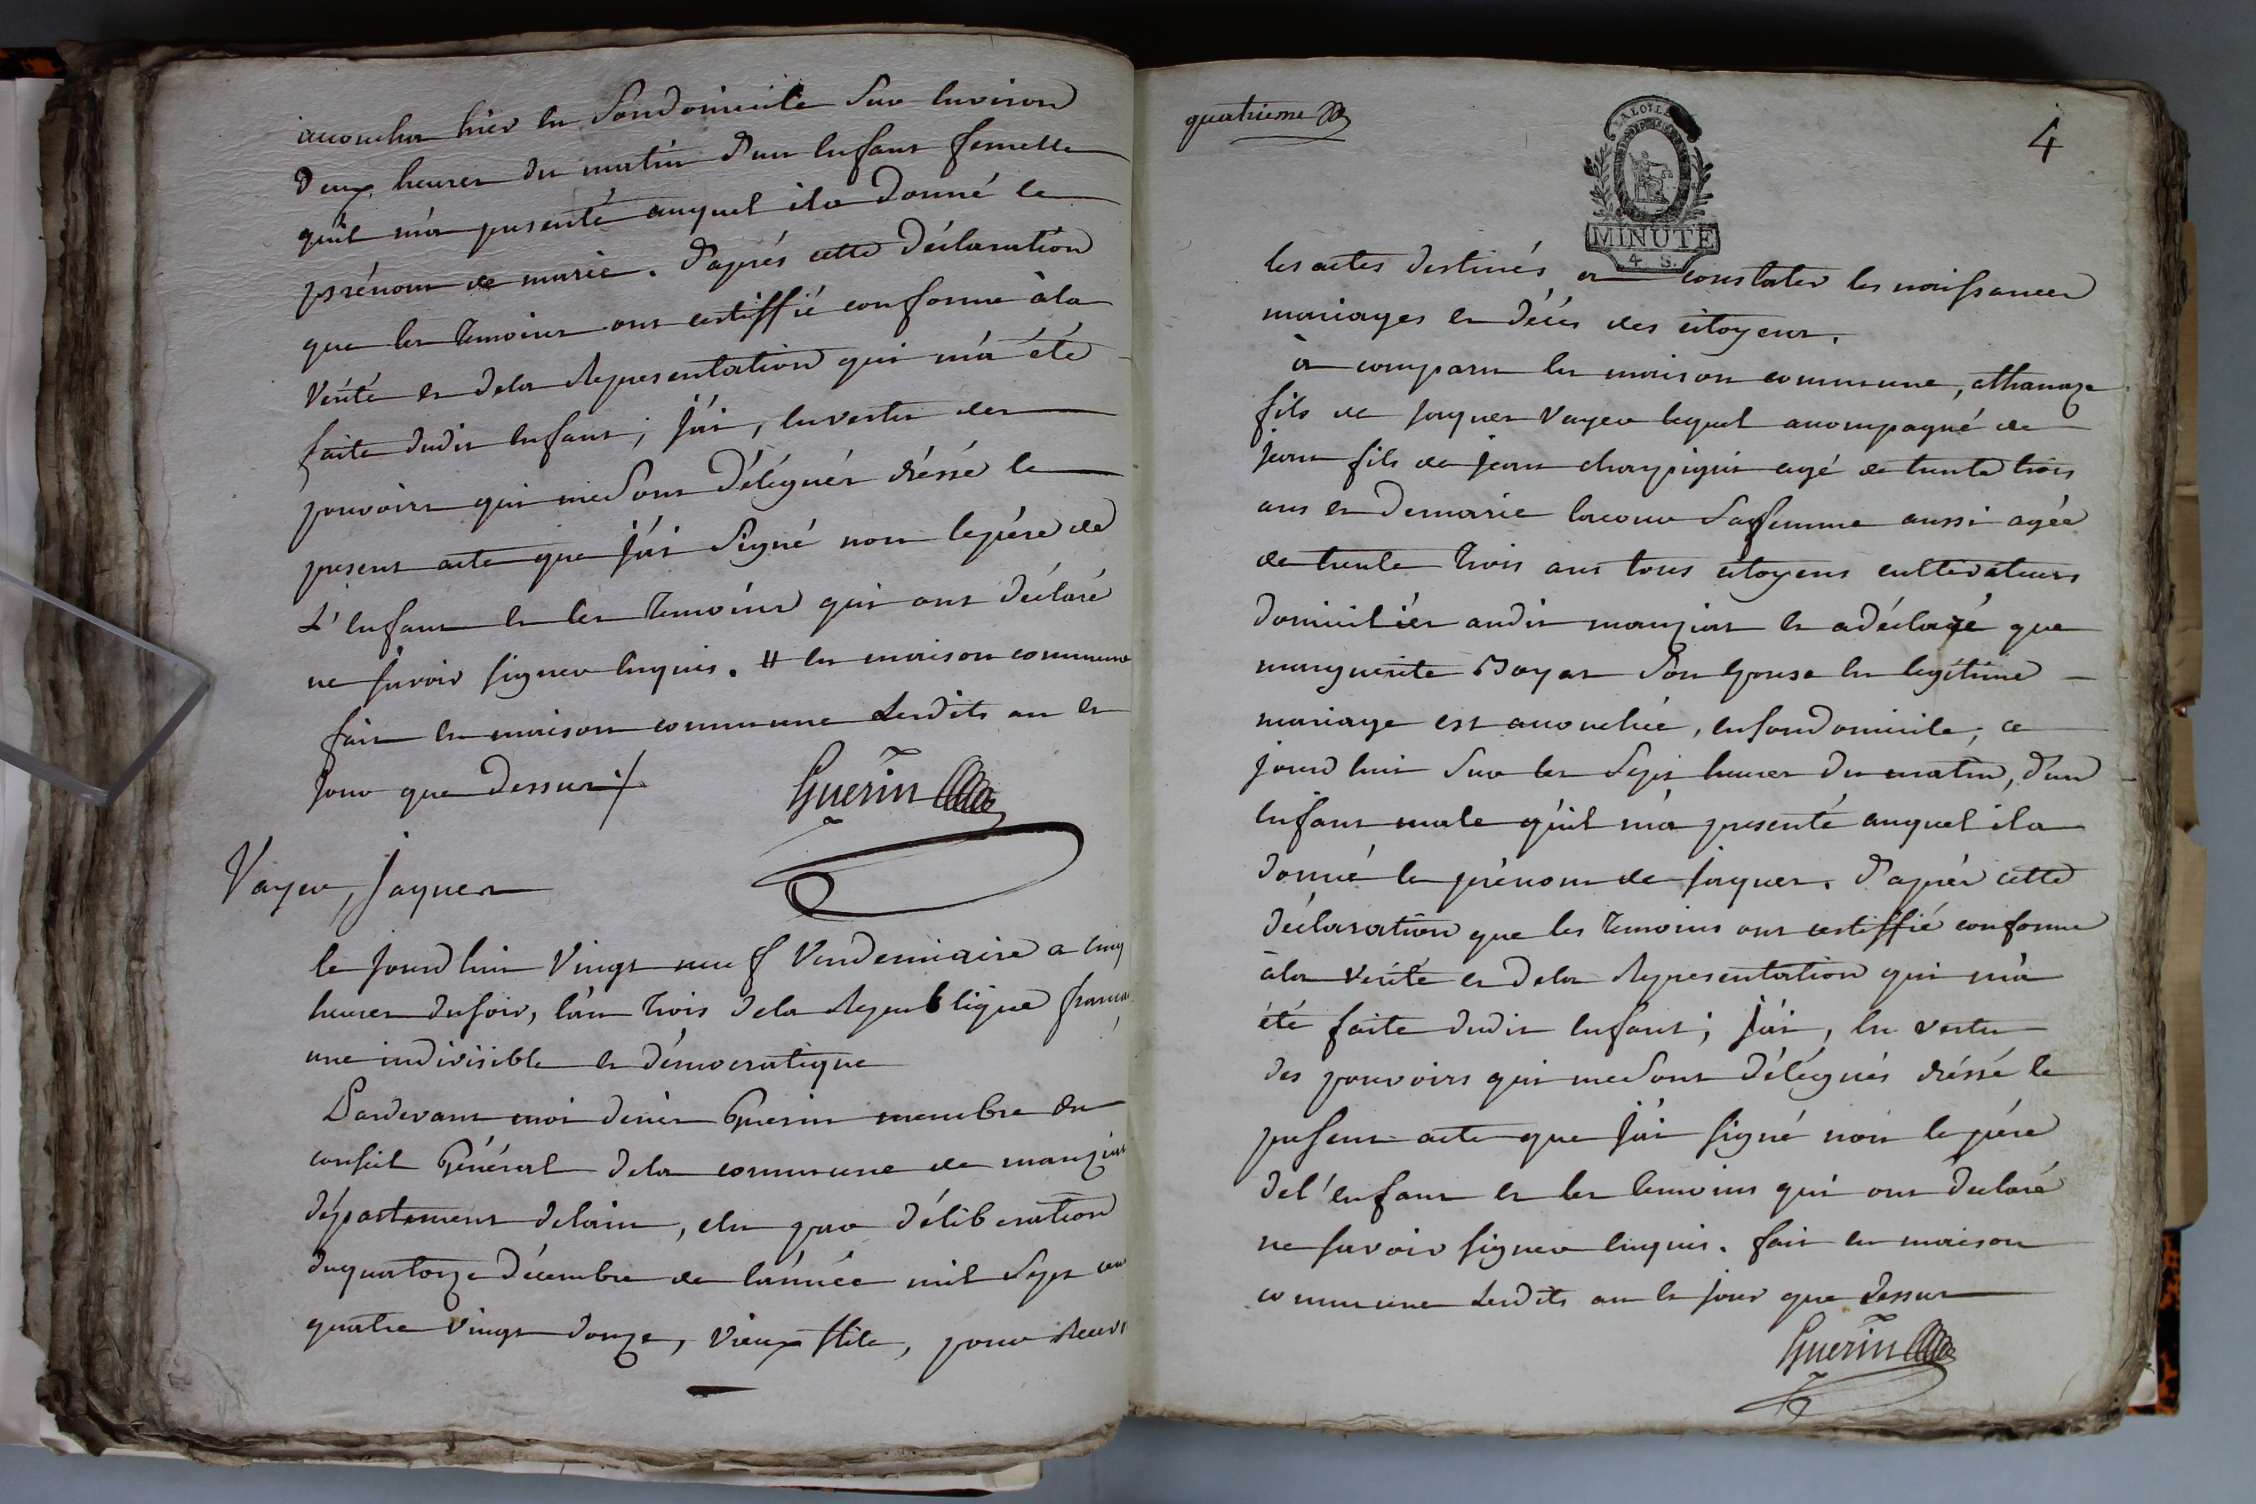 accoucha hier en son domicile sur environ
deux heures du matin d'un enfant femelle
qu'il m'a presenté auquel il a donné le
prénom de marie. d'après cette déclaration
que les temoins ont certiffié conforme à la
vérité et de la Representation qui m'a été
faite dudit enfant; j'ai, en vertu des
pouvoirs qui me sont délégués dréssé le
present acte que j'ai signé non le père de
l'enfant et les temoins qui ont déclaré
ne savoir signer enquis. # en maison commune
fait en maison commune lesdits an et
jour que dessus ./.
Guerin
Vayer, jaques
ce jourd'hui vingt neuf Vendemiaire a cinq
heures du soir, l'an trois de la Republique
une indivisible et démocratique
Pardevant moi denis Guerin membre du
conseil Général de la commune de manziat
département de lain, elu par déliberation
du quatorze décembre de lánnée mil Sept cent
quatre vingt douze, vieux stile, pour
quatrieme
4
MINUTE
4. S.
les actes destinés a constater les naissances
mariages et décès des citoyens.
à comparu en maison commune, athanaze
fils de jaques Vayer lequel accompagné de
jean fils de jean agé de trente trois
ans et de marie sa femme aussi agée
de trente trois ans tous citoyens cultivateurs
domiciliés audit manziat et a déclaré que
marguerite Boyat son epouse en legitime
mariage est accouchée, en son domicile, ce
jourd'hui sur les sept heures du matin, d'un
enfant male qu'il m'a presenté auquel il a
donné le prénom de jaques. d'après cette
déclaration que les temoins ont certiffié conforme
à la vérité et de la Representation qui m'a
été faite dudit enfant; j'ai, en vertu
des pouvoirs qui me sont délégués dréssé le
present acte que j'ai signé non le père
de l'enfant et les temoins qui ont declaré
ne savoir signer enquis. fait en maison
commune lesdits an et jour que dessus
Guerin